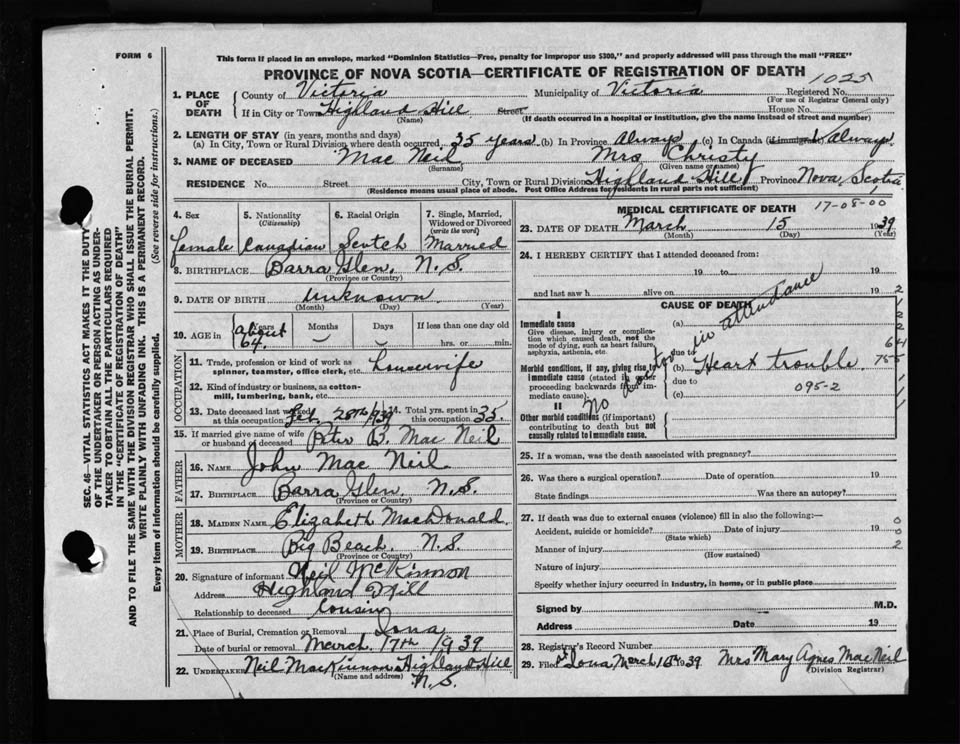 FORM 6
This form if placed in an envelope, marked "Dominion Statistics—Free, penalty for improper use $300," and properly addressed will pass through the mail "FREE"
PROVINCE OF NOVA SCOTIA—CERTIFICATE OF REGISTRATION OF DEATH
1025
1. PLACE OF DEATH
County of Victoria Municipality of Victoria Registered No.
(For use of Registrar General only)
If in City or Town Highland Hill Street House No.
(Name) (If death occurred in a hospital or institution, give the name instead of street and number)
2. LENGTH OF STAY (in years, months and days)
(a) In City, Town or Rural Division where death occurred 35 years (b) In Province Always (c) In Canada (if immigrant) Always
3. NAME OF DECEASED Mac Neil Mrs Christy
(Surname) (Given name or names)
RESIDENCE No. Street City, Town or Rural Division Highland Hill Province Nova Scotia
(Residence means usual place of abode. Post Office Address for residents in rural parts not sufficient)
4. Sex
female
5. Nationality
(Citizenship)
Canadian
6. Racial Origin
Scotch
7. Single, Married, Widowed or Divorced
(write the word)
Married
8. BIRTHPLACE Barra Glen, N.S.
(Province or Country)
9. DATE OF BIRTH unknown
(Month) (Day) (Year)
10. AGE in
Years Months Days If less than one day old
About 64 hrs. or min.
OCCUPATION
11. Trade, profession or kind of work as
spinner, teamster, office clerk, etc. housewife
12. Kind of industry or business, as cotton-
mill, lumbering, bank, etc.
13. Date deceased last worked
at this occupation Feb. 28th/939
14. Total yrs. spent in
this occupation 35
15. If married give name of wife
or husband of deceased Peter B. Mac Neil
FATHER
16. NAME John Mac Neil
17. BIRTHPLACE Barra Glen, N.S.
(Province or Country)
MOTHER
18. MAIDEN NAME Elizabeth MacDonald
19. BIRTHPLACE Big Beach, N.S.
(Province or Country)
20. Signature of informant Neil McKinnon
Address Highland Hill
Relationship to deceased Cousin
21. Place of Burial, Cremation or Removal Iona
Date of burial or removal March 17th 1939
22. UNDERTAKER Neil MacKinnon Highland Hill
(Name and address) N.S.
MEDICAL CERTIFICATE OF DEATH 17-08-00
23. DATE OF DEATH March 15 1939
(Month) (Day) (Year)
24. I HEREBY CERTIFY that I attended deceased from:
19 to 19
and last saw h alive on 19
CAUSE OF DEATH
I
Immediate cause
Give disease, injury or complication which caused death, not the mode of dying, such as heart failure, asphyxia, asthenia, etc.
(a)
due to
Morbid conditions, if any, giving rise to immediate cause (stated in order proceeding backwards from immediate cause).
(b) Heart trouble
due to
(c) 095-2
No doctor in attendance
II
Other morbid conditions (if important) contributing to death but not causally related to immediate cause.
25. If a woman, was the death associated with pregnancy?
26. Was there a surgical operation? Date of operation 19
State findings Was there an autopsy?
27. If death was due to external causes (violence) fill in also the following:—
Accident, suicide or homicide? Date of injury 19
(State which)
Manner of injury
(How sustained)
Nature of injury
Specify whether injury occurred in industry, in home, or in public place
Signed by M.D.
Address Date 19
28. Registrar's Record Number
29. Filed Iona, March 1939 Mrs Mary Agnes MacNeil
(Division Registrar)
SEC. 46—VITAL STATISTICS ACT MAKES IT THE DUTY
OF THE UNDERTAKER OR PERSON ACTING AS UNDER-
TAKER TO OBTAIN ALL THE PARTICULARS REQUIRED
IN THE "CERTIFICATE OF REGISTRATION OF DEATH"
AND TO FILE THE SAME WITH THE DIVISION REGISTRAR WHO SHALL ISSUE THE BURIAL PERMIT.
WRITE PLAINLY WITH UNFADING INK. THIS IS A PERMANENT RECORD.
Every item of information should be carefully supplied. (See reverse side for instructions.)